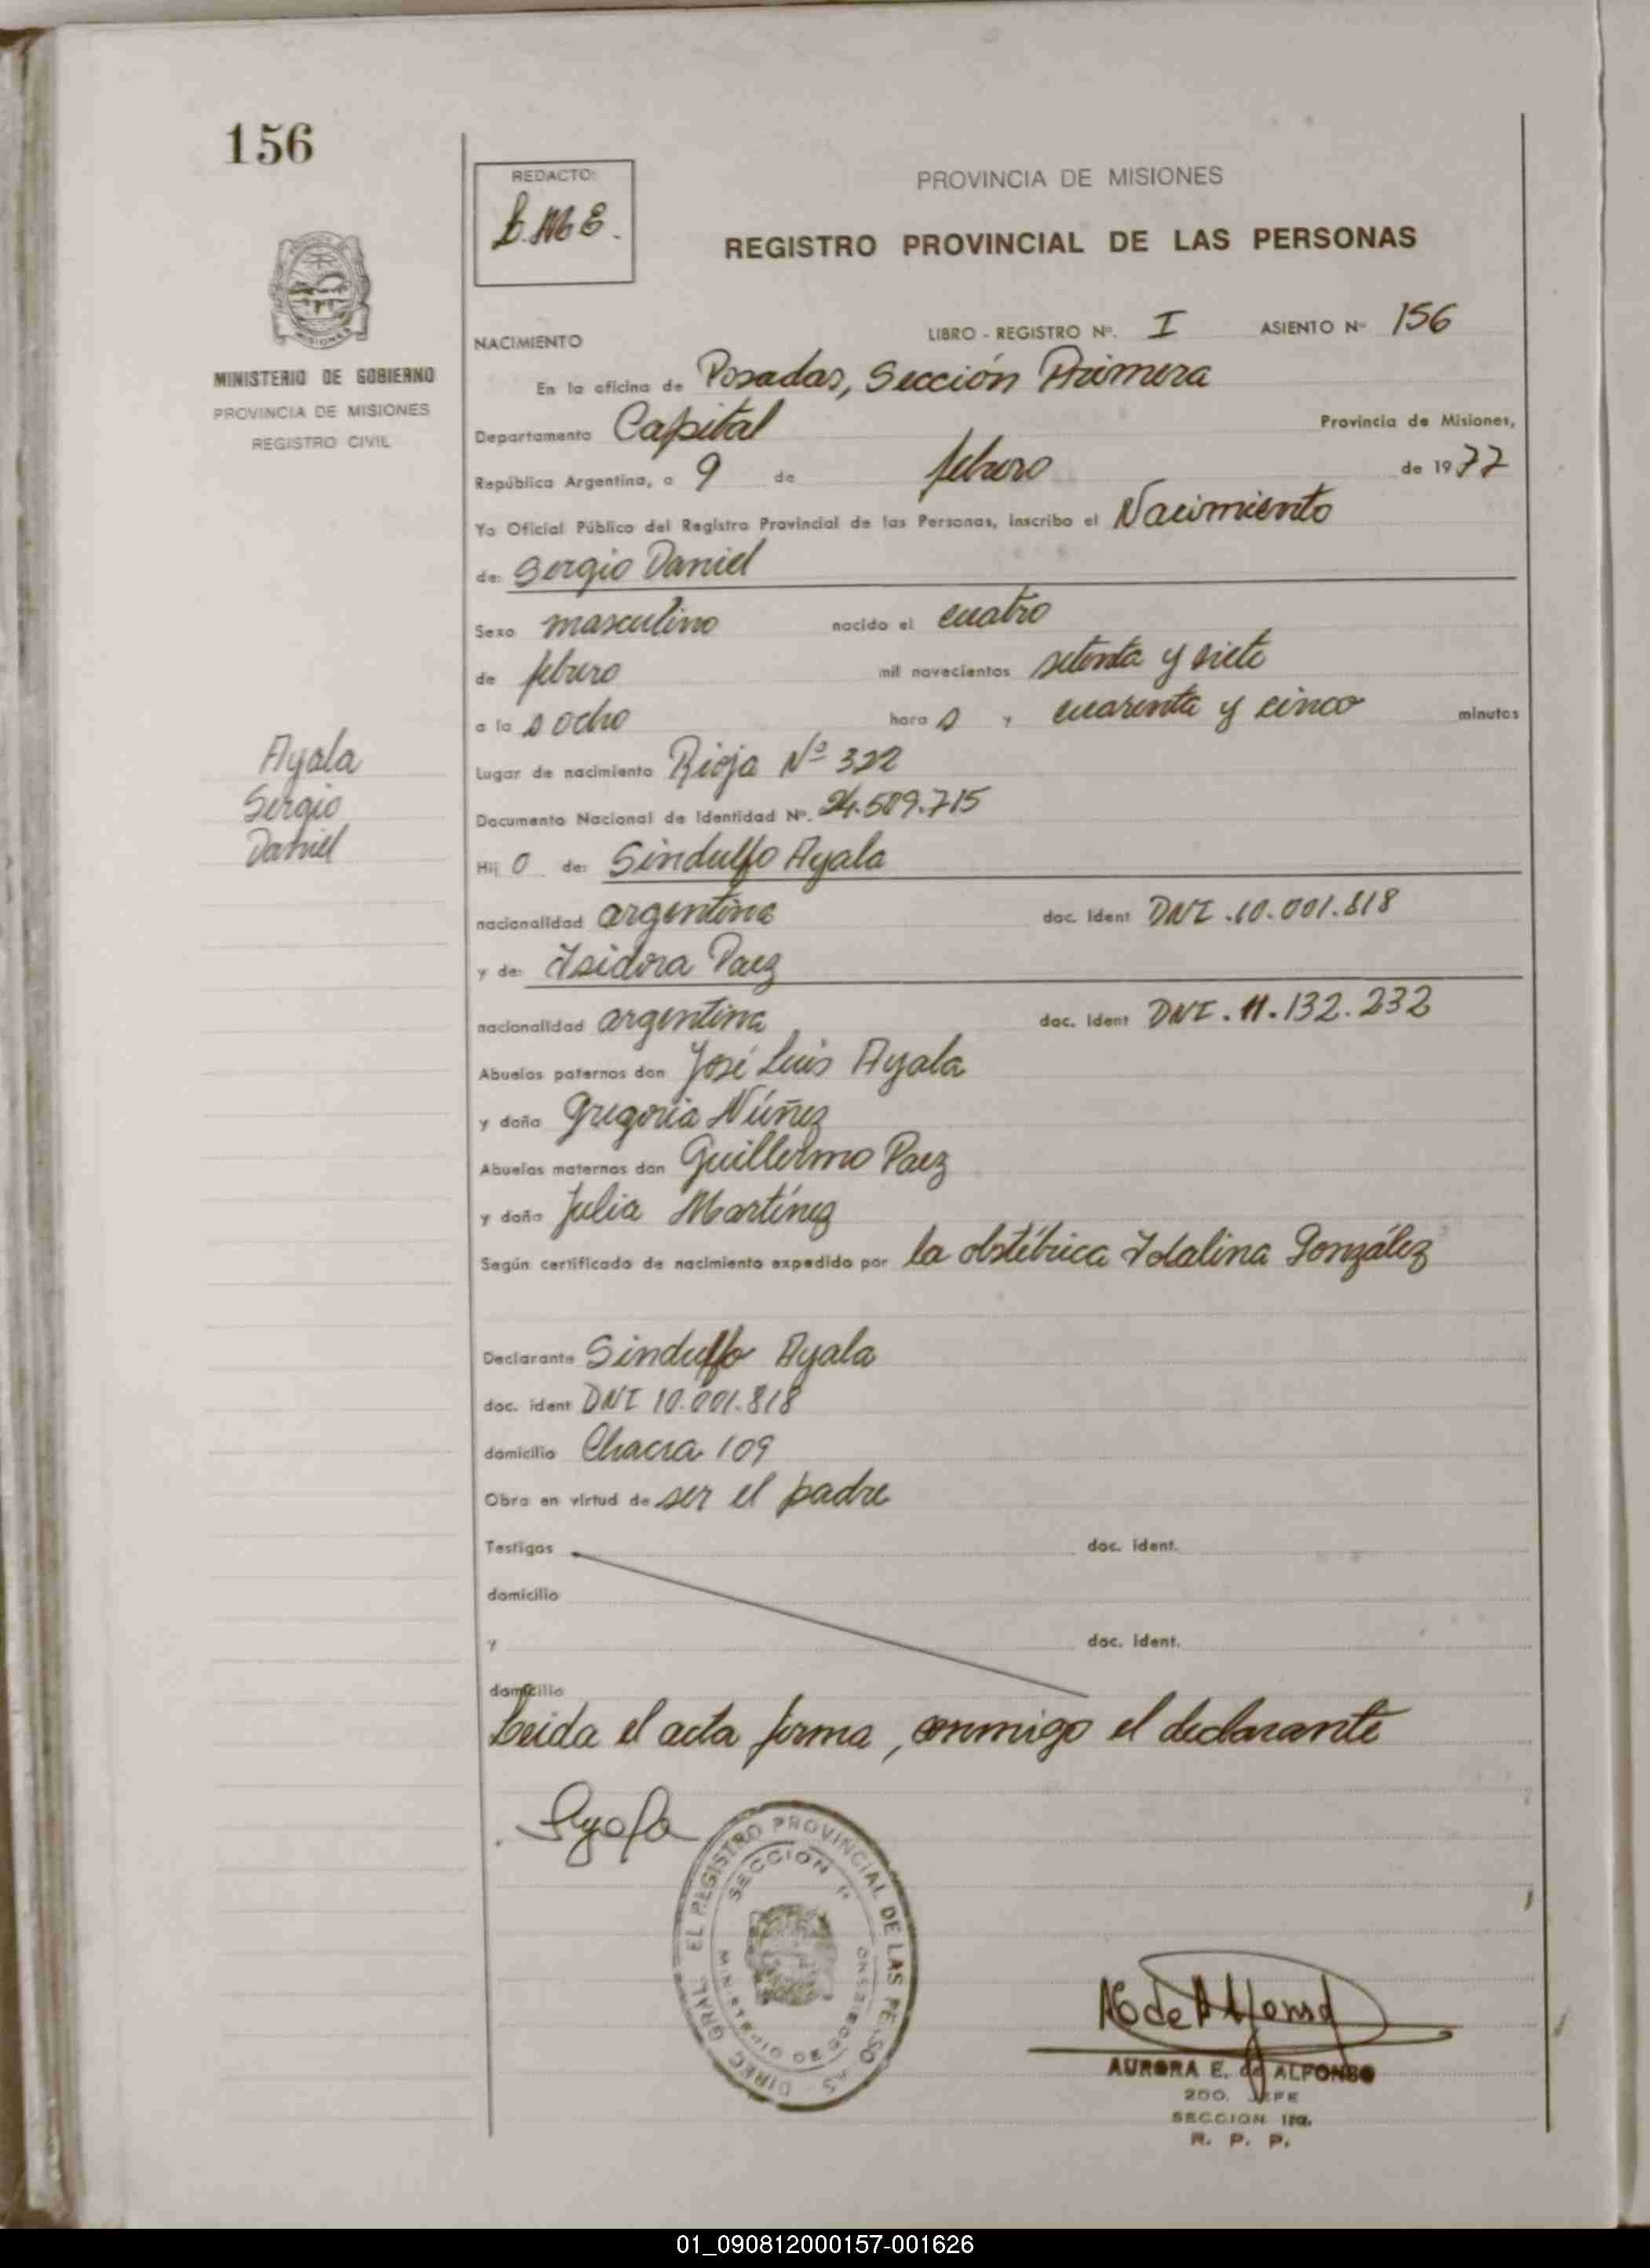 156
REDACTO:
PROVINCIA DE MISIONES
REGISTRO PROVINCIAL DE LAS PERSONAS
MISIONES
MINISTERIO DE GOBIERNO
PROVINCIA DE MISIONES
REGISTRO CIVIL
NACIMIENTO LIBRO - REGISTRO Nº. I ASIENTO Nº 156
En la oficina de Posadas, Sección Primera
Departamento Capital Provincia de Misiones,
República Argentina, a 9 de febrero de 1977
Yo Oficial Público del Registro Provincial de las Personas, inscribo el Nacimiento
de: Sergio Daniel
Sexo masculino nacido el cuatro
de febrero mil novecientos setenta y siete
a las ocho horas y cuarenta y cinco minutos
Ayala
Sergio
Daniel
Lugar de nacimiento Rioja Nº 322
Documento Nacional de Identidad Nº. 24.509.715
Hijo de: Sindulfo Ayala
nacionalidad argentina doc. Ident DNI.10.001.818
y de: Isidora Paez
nacionalidad argentina doc. Ident DNI.11.132.232
Abuelos paternos don José Luis Ayala
y doña Gregoria Núñez
Abuelos maternos don Guillermo Paez
y doña Julia Martínez
Según certificado de nacimiento expedido por la obstétrica Idalina González
Declarante Sindulfo Ayala
doc. ident DNI 10.001.818
domicilio Chacra 109
Obra en virtud de ser el padre
Testigos doc. ident.
domicilio
y doc. ident.
domicilio
Leida el acta firma, conmigo el declarante
Ayala
DIREC. GRAL. EL REGISTRO PROVINCIAL DE LAS PERSONAS
SECCION 1ª
MINISTERIO DE GOBIERNO
AURORA E. de ALFONSO
2DO. JEFE
SECCION 1ra.
R. P. P.
01_090812000157-001626